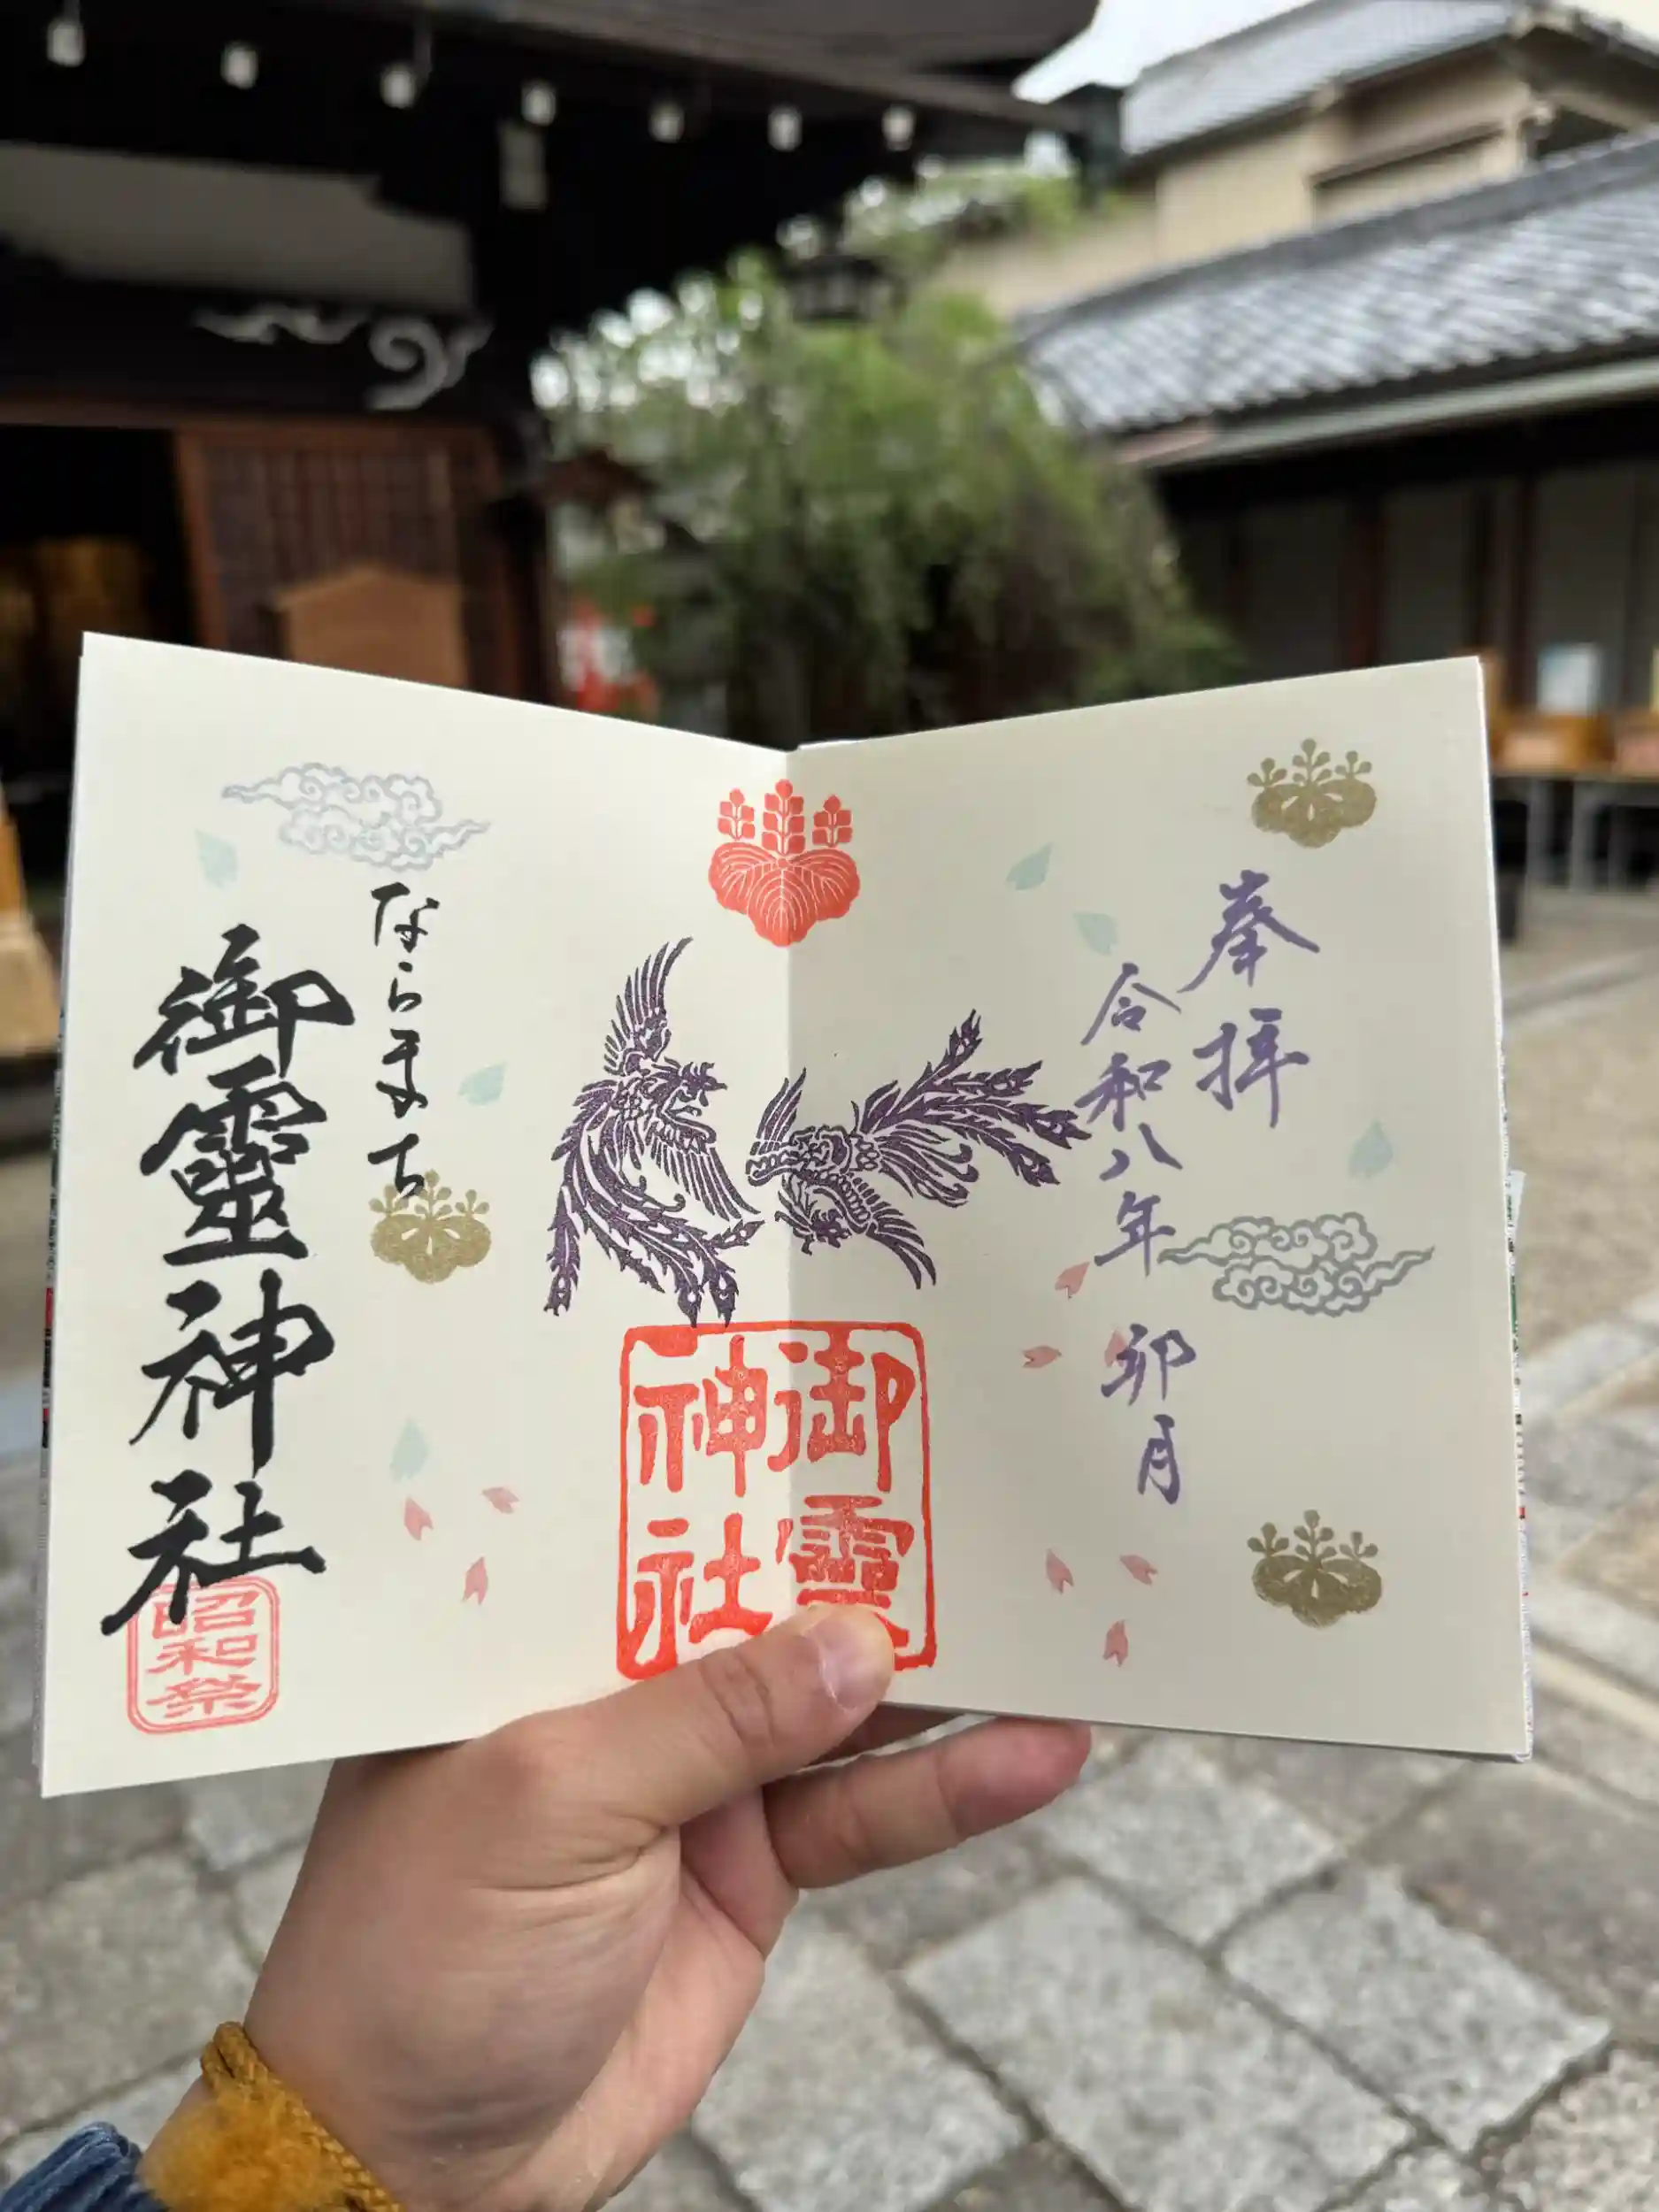 奉拝
令和八年 卯月
御靈
神社
ならまち
御靈神社
昭和祭